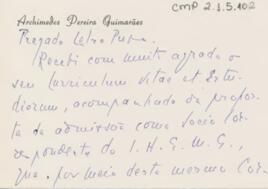 CMP 2.1.5.102
Archimedes Pereira Guimarães
Prezado
Recebi com muito agrado o
seu Curriculum Vitae et Stu-
diorum, acompanhado da propos-
ta de admissão como sócio Cor-
respondente do I. H. G. M. G.,
que, por meio desta mesma Cor-